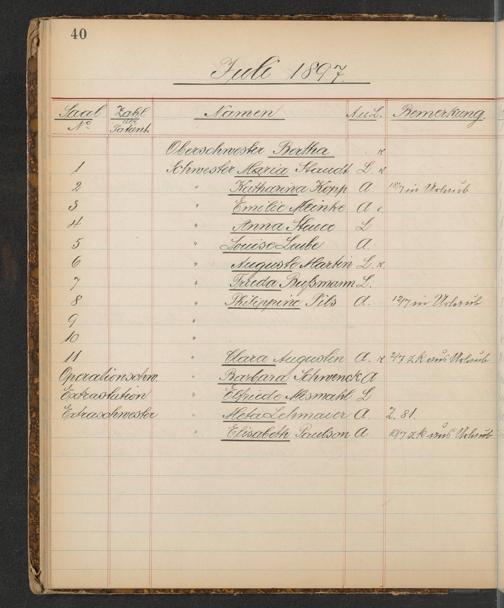 40
Juli 1897
Saal No Zahl der Patient. Namen A.u.L. Bemerkung.
Oberschwester Bertha x
1 Schwester Maria Staudt L x
2 " Katharina Kopp A in Urlaub
3 " Emilie Meinke A
4 " Anna L
5 " Louise Leube A
6 " Auguste Martin L. x.
7 " Frieda Bußmann L.
8 " Philippine Pils A. in Urlaub
9 "
10 "
11 " Clara Augustin A. x z.k. aus Urlaub
Operationsschw. " Barbara Schwenck A
Extrastation " Elfriede Mesmahl L
Extraschwester " Meta Lehmaier A Z. 81.
" Elisabeth Paulson A z.k. aus Urlaub